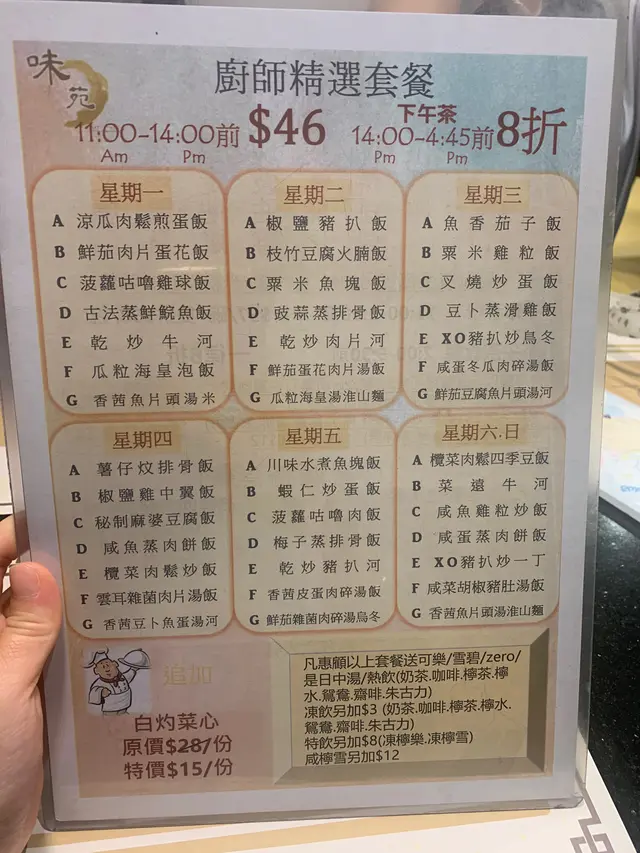 味苑
廚師精選套餐
11:00-14:00前 $46 下午茶 14:00-4:45前 8折
Am Pm Pm Pm
星期一
A 涼瓜肉鬆煎蛋飯
B 鮮茄肉片蛋花飯
C 菠蘿咕嚕雞球飯
D 古法蒸鮮鯇魚飯
E 乾炒牛河
F 瓜粒海皇泡飯
G 香茜魚片頭湯米
星期二
A 椒鹽豬扒飯
B 枝竹豆腐火腩飯
C 粟米魚塊飯
D 豉蒜蒸排骨飯
E 乾炒肉片河
F 鮮茄蛋花肉片湯飯
G 瓜粒海皇湯淮山麵
星期三
A 魚香茄子飯
B 粟米雞粒飯
C 叉燒炒蛋飯
D 豆卜蒸滑雞飯
E XO豬扒炒烏冬
F 咸蛋冬瓜肉碎湯飯
G 鮮茄豆腐魚片頭湯河
星期四
A 薯仔炆排骨飯
B 椒鹽雞中翼飯
C 秘制麻婆豆腐飯
D 咸魚蒸肉餅飯
E 欖菜肉鬆炒飯
F 雲耳雜菌肉片湯飯
G 香茜豆卜魚蛋湯河
星期五
A 川味水煮魚塊飯
B 蝦仁炒蛋飯
C 菠蘿咕嚕肉飯
D 梅子蒸排骨飯
E 乾炒豬扒河
F 香茜皮蛋肉碎湯飯
G 鮮茄雜菌肉碎湯烏冬
星期六.日
A 欖菜肉鬆四季豆飯
B 菜遠牛河
C 咸魚雞粒炒飯
D 咸蛋蒸肉餅飯
E XO豬扒炒一丁
F 咸菜胡椒豬肚湯飯
G 香茜魚片頭湯淮山麵
追加
白灼菜心
原價$28/份
特價$15/份
凡惠顧以上套餐送可樂/雪碧/zero/
是日中湯/熱飲(奶茶.咖啡.檸茶.檸
水.鴛鴦.齋啡.朱古力)
凍飲另加$3 (奶茶.咖啡.檸茶.檸水.
鴛鴦.齋啡.朱古力)
特飲另加$8(凍檸樂.凍檸雪)
咸檸雪另加$12